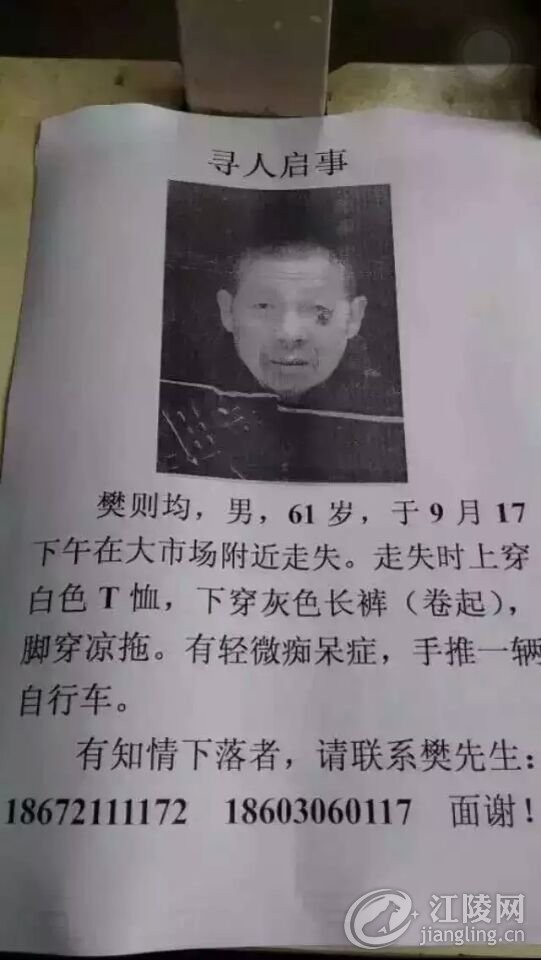 寻人启事
樊则均，男，61岁，于9月17
下午在大市场附近走失。走失时上穿
白色T恤，下穿灰色长裤（卷起），
脚穿凉拖。有轻微痴呆症，手推一辆
自行车。
有知情下落者，请联系樊先生：
18672111172 18603060117 面谢！
江陵网
jiangling.cn